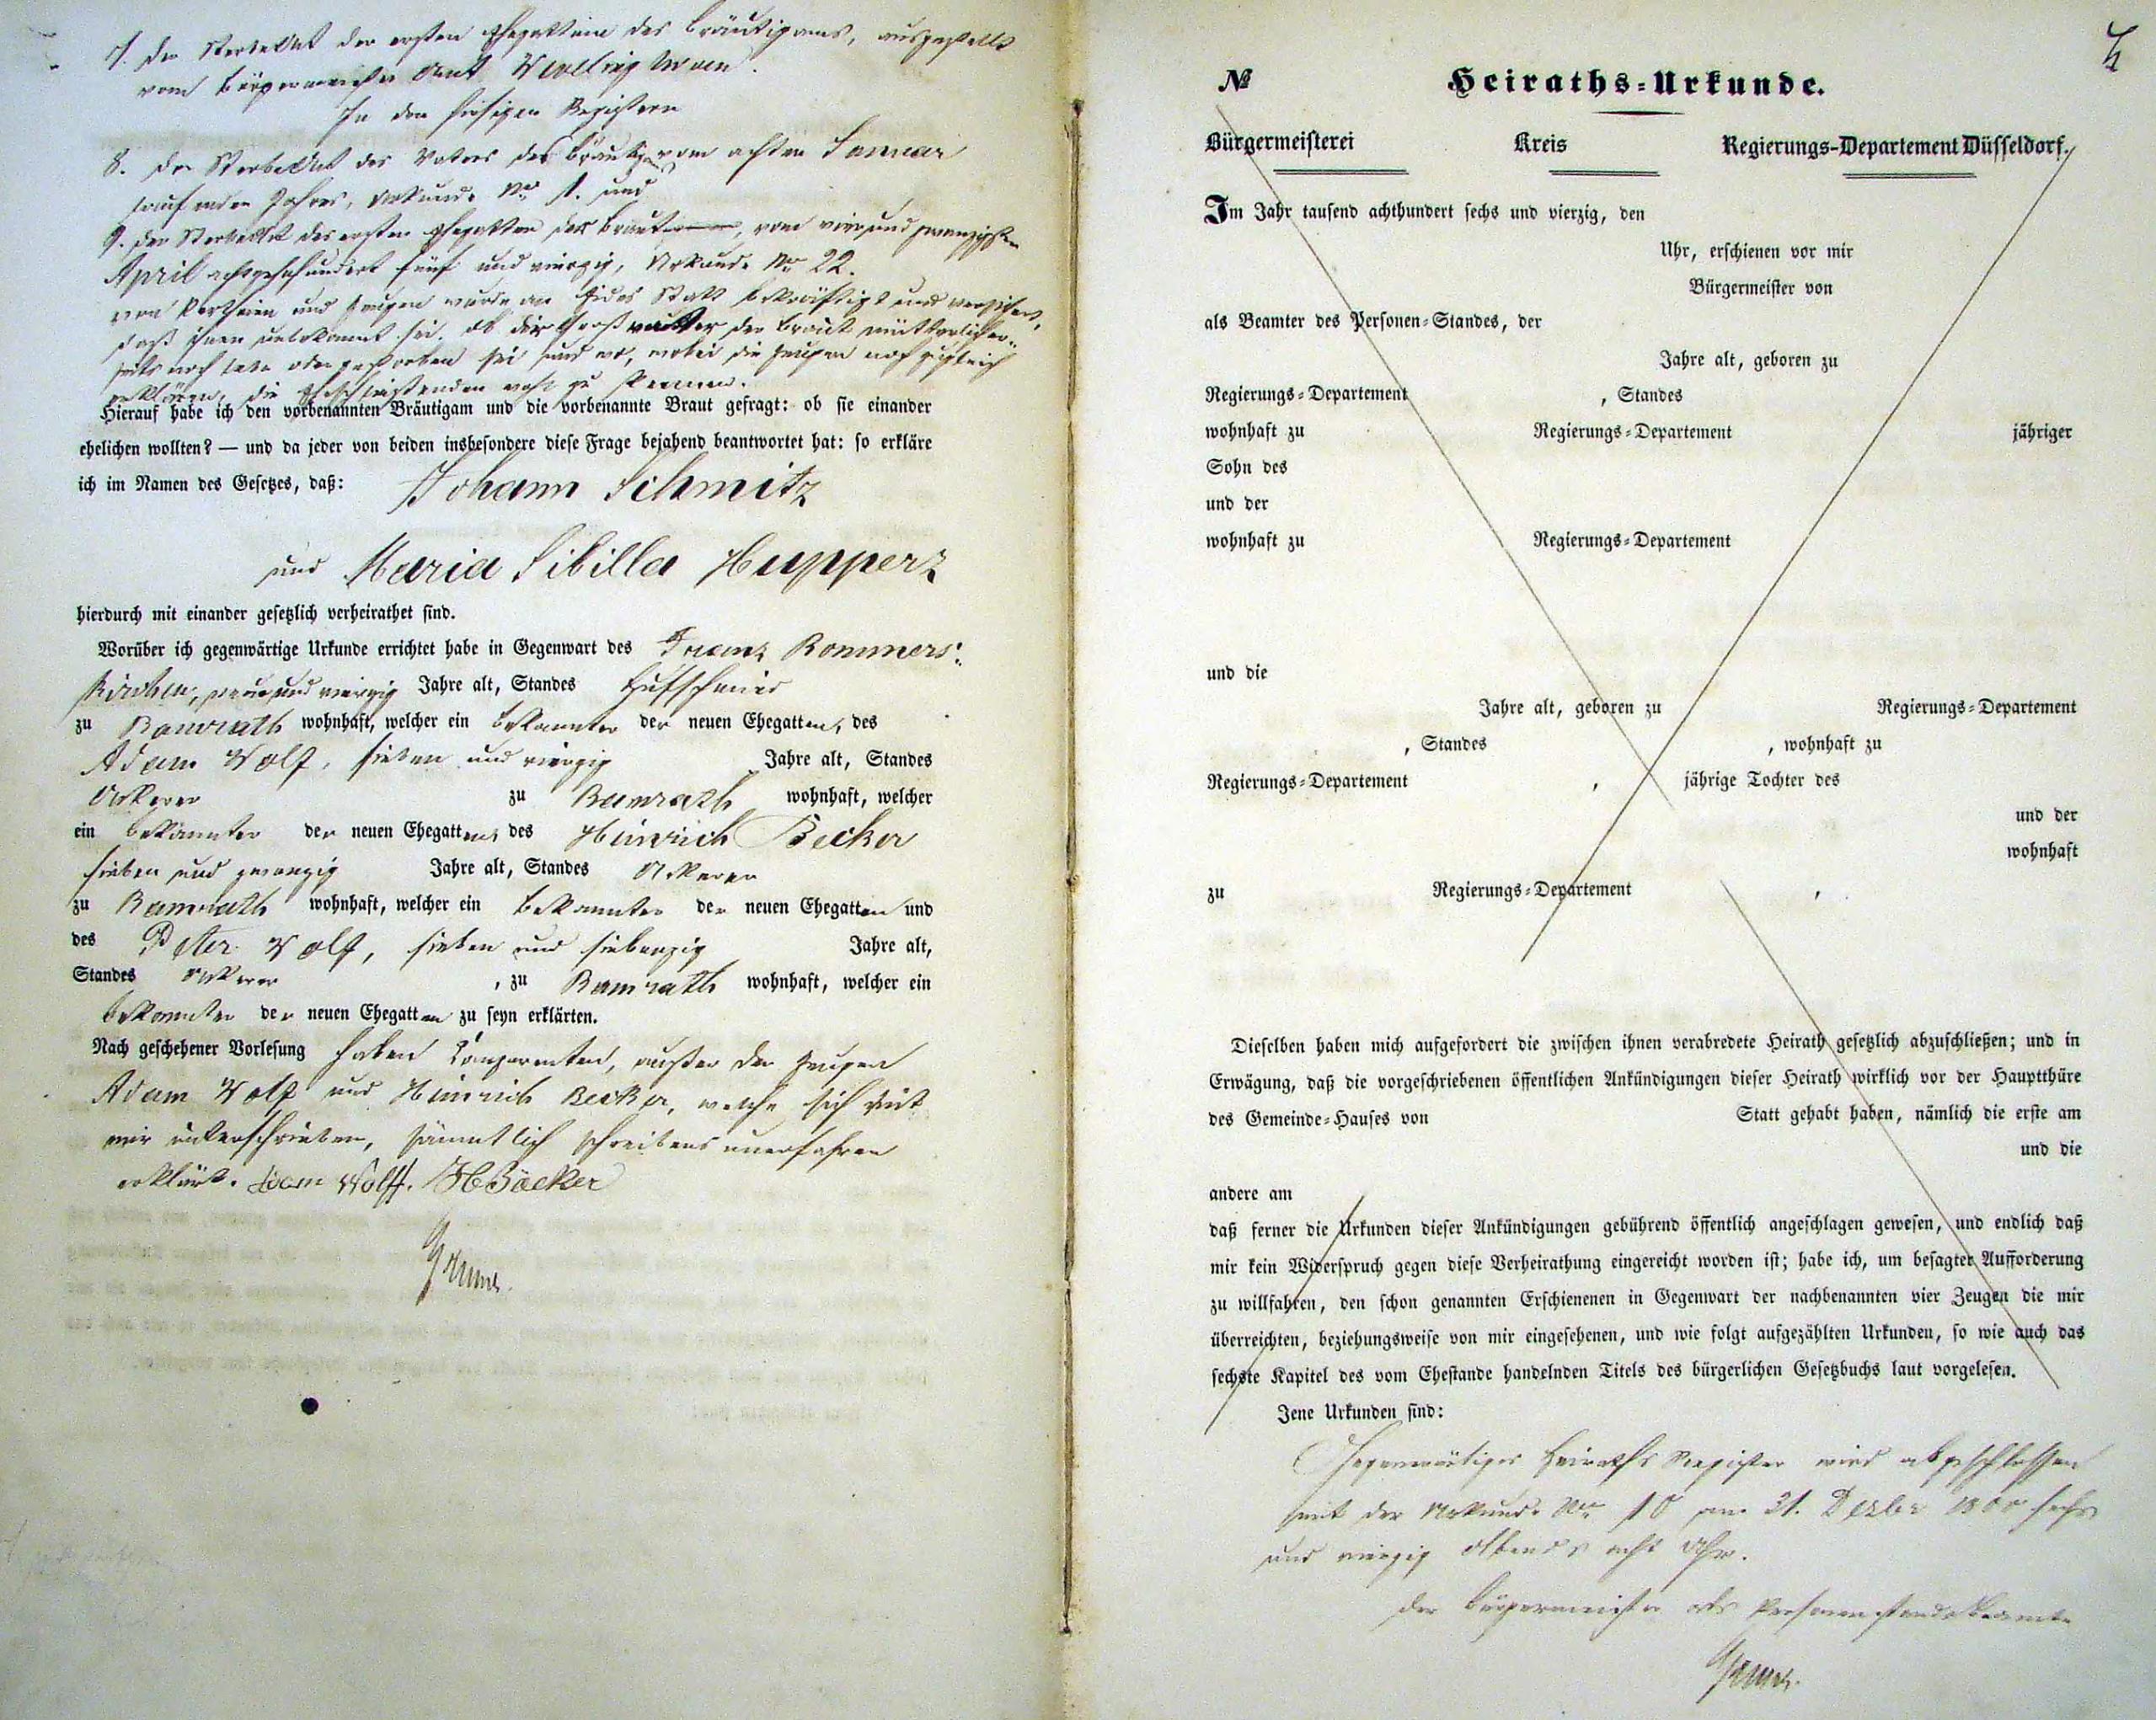 7. der Sterbeakt der ersten Ehegattin des Bräutigams, ausgestellt
vom Bürgermeister Amt
In den hiesigen Registern
8. der Sterbeakt des Vaters des Bräutigams vom achten Januar
laufenden Jahres, Urkunde No 1. und
9. der Sterbeakt des ersten Ehegatten der Braut, vom vierundzwanzigsten
April achtzehnhundert fünf und vierzig, Urkunde No 22.
von Partheien und Zeugen wurde an Eides Statt bekräftigt und versichert,
daß ihnen unbekannt sei, ob die Großmutter der Braut mütterlicher-
seits noch lebe oder gestorben sei und wo, wobei die Zeugen noch zugleich
erklären, die Eheschließenden wohl zu kennen.
Hierauf habe ich den vorbenannten Bräutigam und die vorbenannte Braut gefragt: ob sie einander
ehelichen wollten? — und da jeder von beiden insbesondere diese Frage bejahend beantwortet hat: so erkläre
ich im Namen des Gesetzes, daß: Johann Schmitz
und Maria Sibilla Hupperz
hierdurch mit einander gesetzlich verheirathet sind.
Worüber ich gegenwärtige Urkunde errichtet habe in Gegenwart des Franz Rommers-
kirchen, neun und vierzig Jahre alt, Standes Hufschmied
zu Bamrath wohnhaft, welcher ein Bekannter der neuen Ehegatten, des
Adam Wolf, sieben und vierzig Jahre alt, Standes
Ackerer zu Bamrath wohnhaft, welcher
ein Bekannter der neuen Ehegatten, des Heinrich Becker
sieben und zwanzig Jahre alt, Standes Ackerer
zu Bamrath wohnhaft, welcher ein Bekannter der neuen Ehegatten und
des Peter Wolf, sieben und siebenzig Jahre alt,
Standes Ackerer, zu Bamrath wohnhaft, welcher ein
Bekannter der neuen Ehegatten zu seyn erklärten.
Nach geschehener Vorlesung haben Comparenten, außer den Zeugen
Adam Wolf und Heinrich Becker, welche sich mit
mir unterschrieben, sämmtlich schreibensunerfahren
erklärt. Adam Wolff. H Bäcker
№ Heiraths-Urkunde.
Bürgermeisterei Kreis Regierungs-Departement Düsseldorf.
Im Jahr tausend achthundert sechs und vierzig, den
Uhr, erschienen vor mir
Bürgermeister von
als Beamter des Personen-Standes, der
Jahre alt, geboren zu
Regierungs-Departement , Standes
wohnhaft zu Regierungs-Departement jähriger
Sohn des
und der
wohnhaft zu Regierungs-Departement
und die
Jahre alt, geboren zu Regierungs-Departement
, Standes , wohnhaft zu
Regierungs-Departement , jährige Tochter des
und der
wohnhaft
zu Regierungs-Departement ,
Dieselben haben mich aufgefordert die zwischen ihnen verabredete Heirath gesetzlich abzuschließen; und in
Erwägung, daß die vorgeschriebenen öffentlichen Ankündigungen dieser Heirath wirklich vor der Hauptthüre
des Gemeinde-Hauses von Statt gehabt haben, nämlich die erste am
und die
andere am
daß ferner die Urkunden dieser Ankündigungen gebührend öffentlich angeschlagen gewesen, und endlich daß
mir kein Widerspruch gegen diese Verheirathung eingereicht worden ist; habe ich, um besagter Aufforderung
zu willfahren, den schon genannten Erschienenen in Gegenwart der nachbenannten vier Zeugen die mir
überreichten, beziehungsweise von mir eingesehenen, und wie folgt aufgezählten Urkunden, so wie auch das
sechste Kapitel des vom Ehestande handelnden Titels des bürgerlichen Gesetzbuchs laut vorgelesen.
Jene Urkunden sind:
Gegenwärtiges Heiraths Register wird abgeschlossen
mit der Urkunde No 10 am 31. Dezbr 1800 sechs
und vierzig Abends acht Uhr.
Der Bürgermeister als Personenstandsbeamte